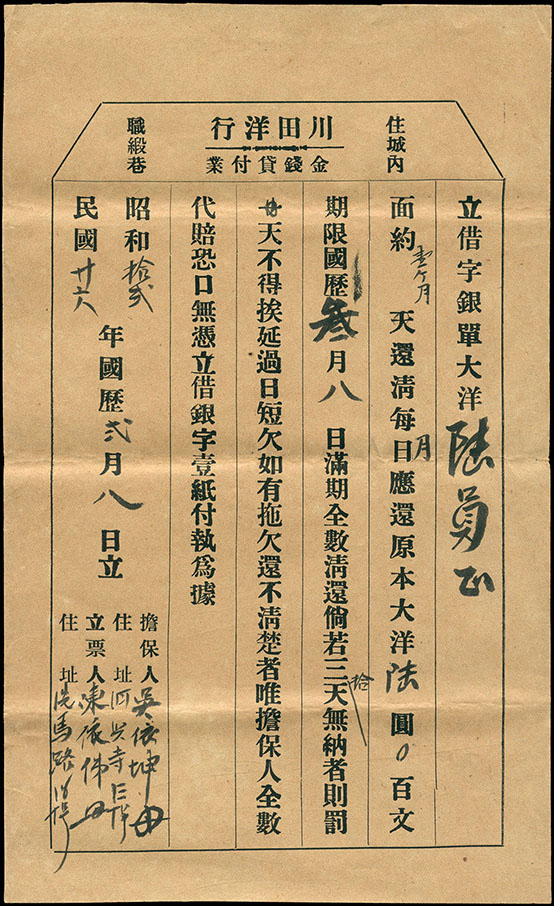 住城內
川田洋行
金錢貸付業
職緞巷
立借字銀單大洋陸員正
面約壹ケ月天還清每日月應還原本大洋陸圓0百文
期限國歷叁月八日滿期全數清還倘若三拾天無納者則罰
天不得挨延過日短欠如有拖欠還不清楚者唯擔保人全數
代賠恐口無憑立借銀字壹紙付執爲據
昭和拾弍
民國廿六
年國歷弍月八日立
擔保人吳依坤
住址
立票人陳依伟
住址洗馬路